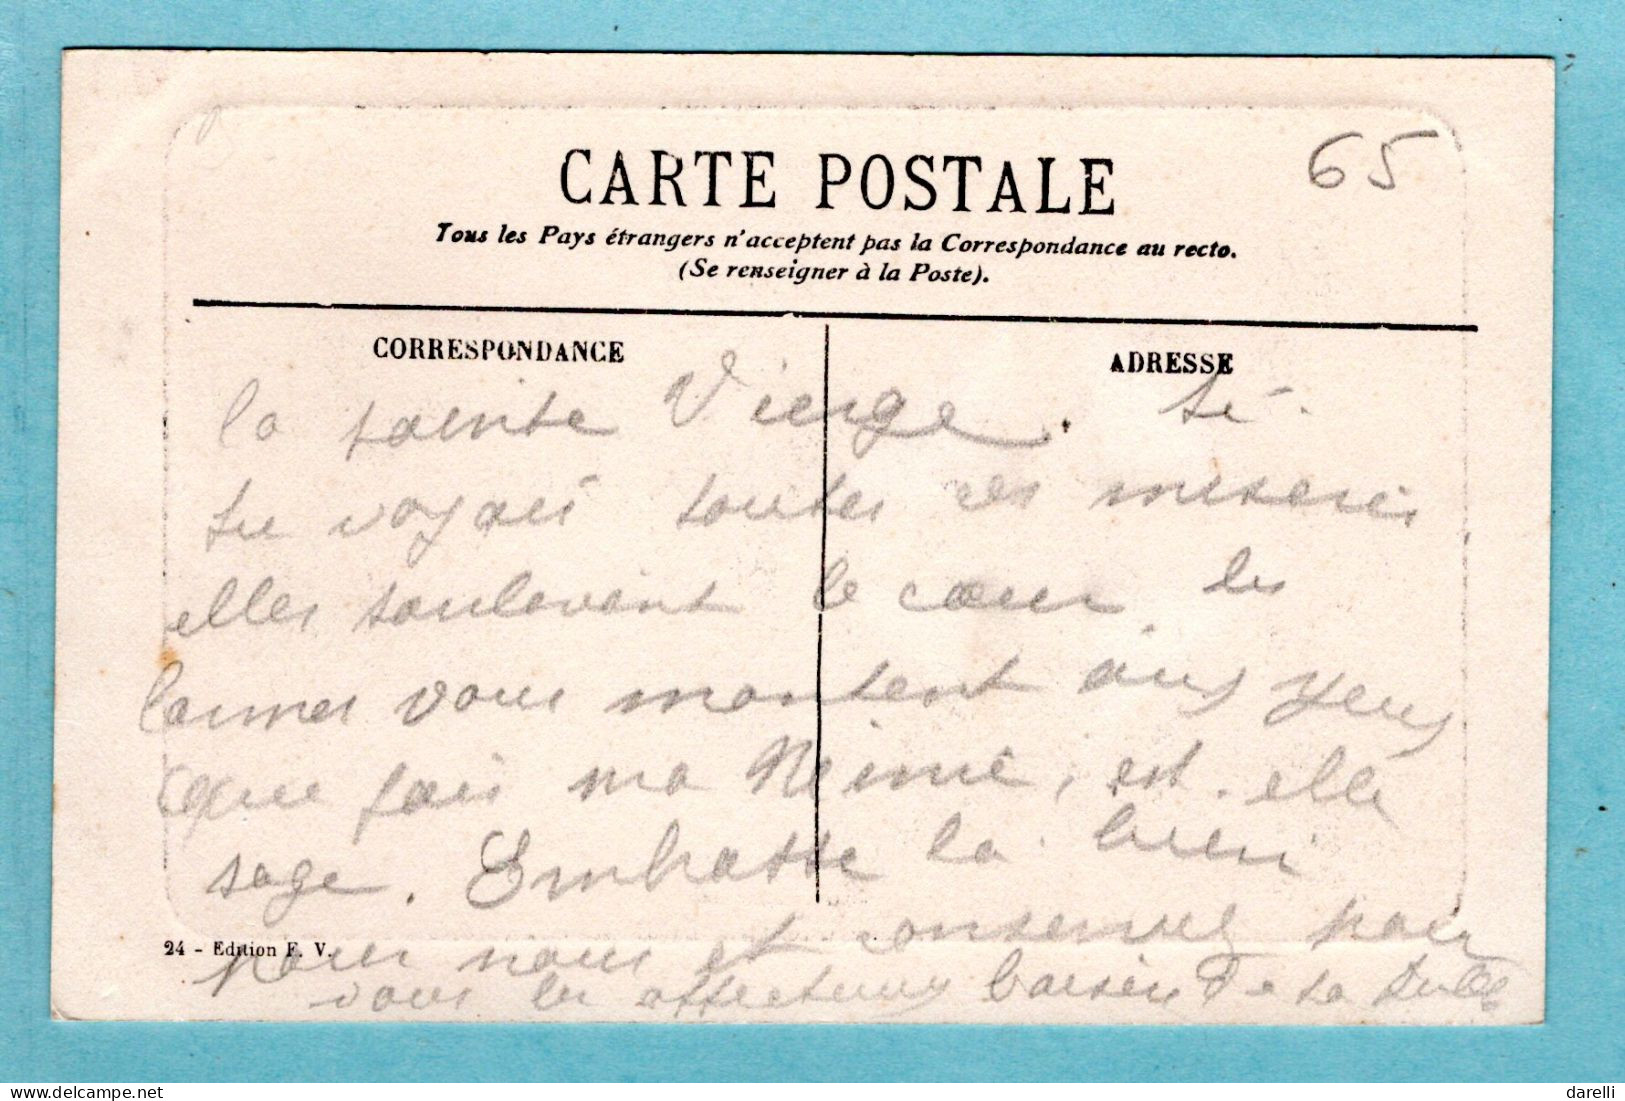 CARTE POSTALE
65
Tous les Pays étrangers n'acceptent pas la Correspondance au recto.
(Se renseigner à la Poste).
CORRESPONDANCE
ADRESSE
la sainte Vierge. si
tu voyais toutes ces miseres
elles soulevent le cœur les
larmes vous montent aux yeux
que fais ma Mimie, est-elle
sage. Embrasse la bien
pour nous et conservez pour
vous les affectueux baisers de ta
24 - Edition F. V.
darelli